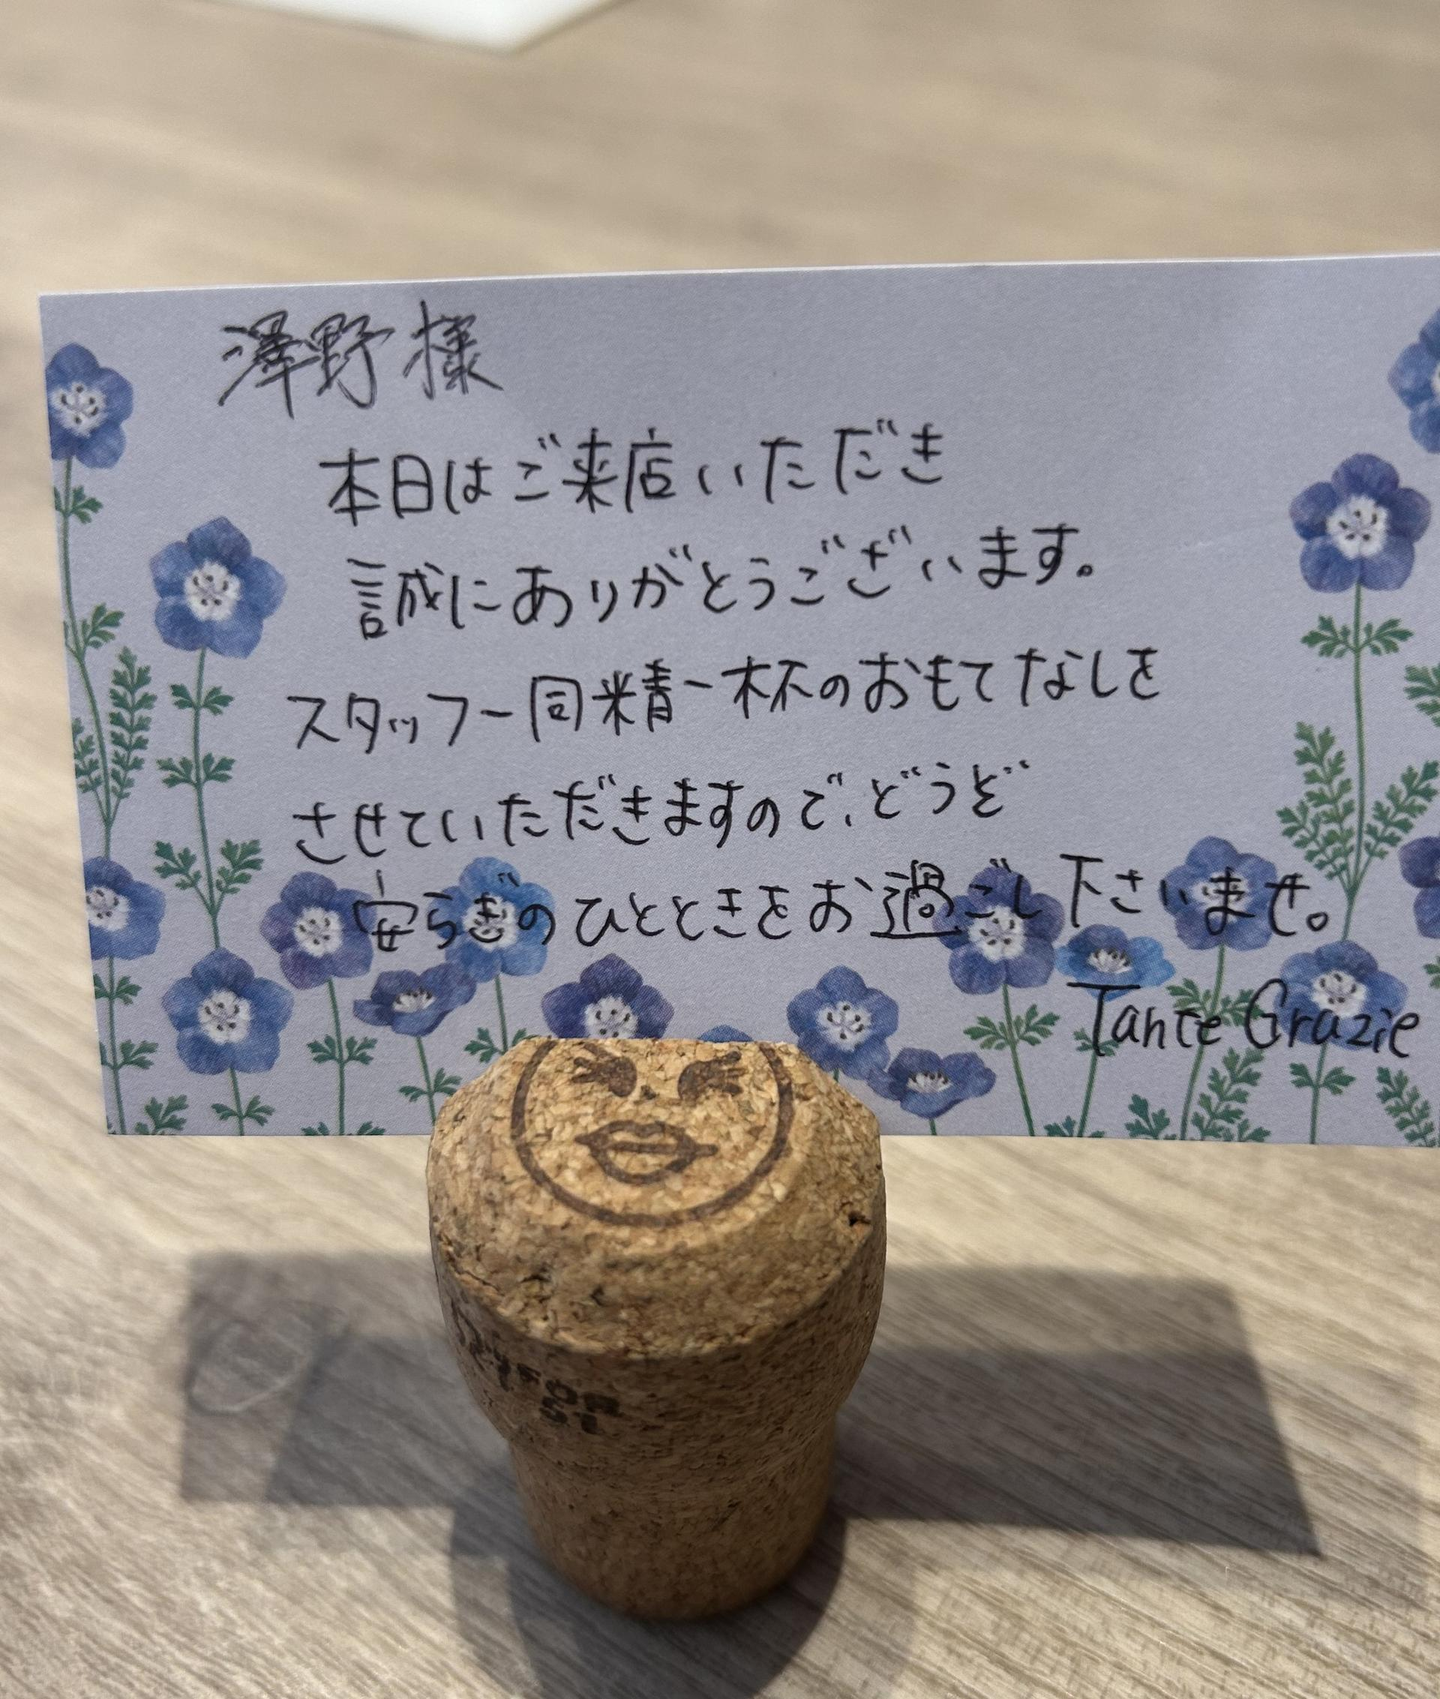 澤野様
本日はご来店いただき
誠にありがとうございます。
スタッフ一同精一杯のおもてなしを
させていただきますので、どうぞ
安らぎのひとときをお過ごし下さいませ。
Tante Grazie